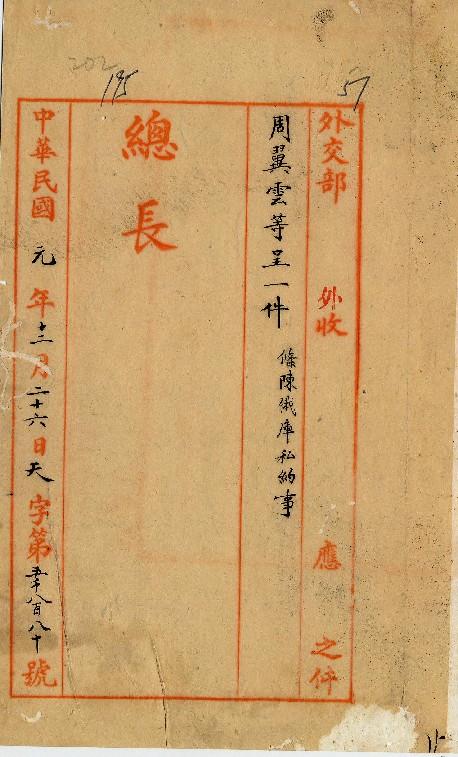 202
195
57
外交部 外收 應 之件
周翼雲等呈一件 條陳俄庫私約事
總長
中華民國元年十二月二十六日天字第五千八百八十號